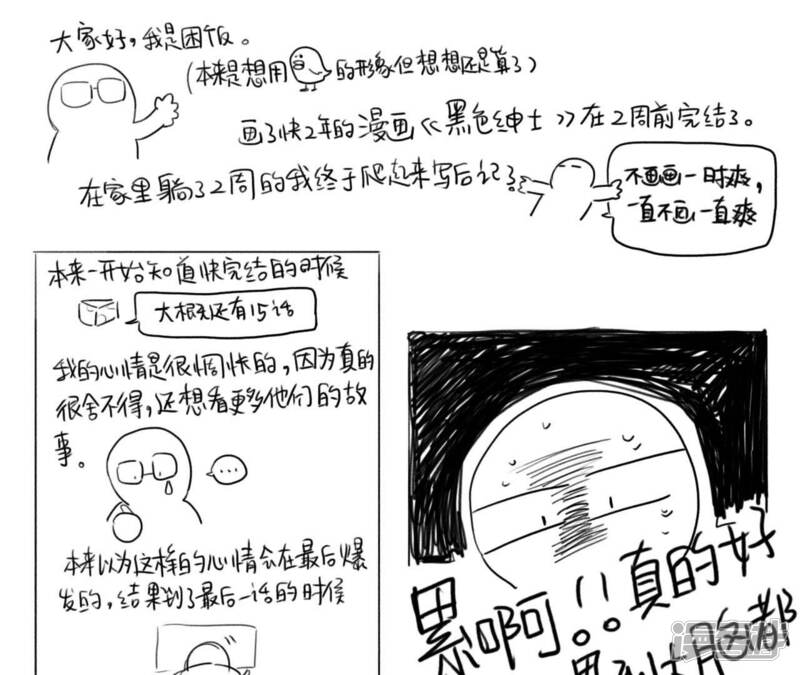 大家好，我是困饭。
（本来是想用 的形象但想想还是算了）
画了快2年的漫画《黑色绅士》在2周前完结了。
在家里躺了2周的我终于爬起来写后记了
不画画一时爽，
一直不画一直爽
本来一开始知道快完结的时候
大概还有15话
我的心情是很惆怅的，因为真的
很舍不得，还想看更多他们的故
事。
...
本来以为这样的心情会在最后爆
发的，结果到了最后一话的时候
累啊！！真的好
都